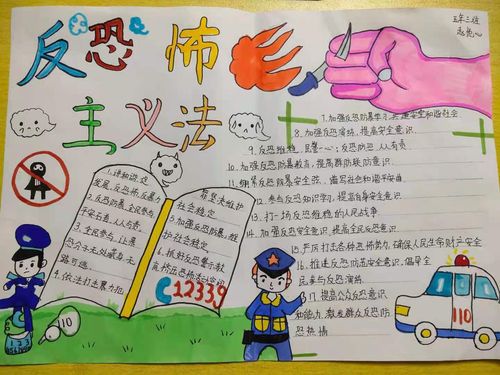 反恐怖
主义法
五年三班
7.加强反恐防暴学习,共建安全和谐社会
8.加强反恐演练,提高安全意识
9.反恐维稳,民警一心;反恐防恐,人人有责
10.加强反恐防暴教育,提高群防联防意识
11.绷紧反恐防暴安全弦,谱写社会和谐平安曲
12.参与反恐知识学习,提高自身安全意识
13.打一场反恐维稳的人民战争
14.加强反恐安全意识,提高全民反恐意识
15.严厉打击各种恐怖势力,确保人民生命财产安全
16.推进反恐防范安全意识,倡导全
民参与反恐演练
17.提高公众反恐意识
和能力,激发群众反恐防
恐热情
1.谋和谐,促
发展,反恐怖,
2.反恐防暴,全民参与
平安与君,人人有责
3.全民参与,让暴
恐分子无处藏身,无
路可逃
4.依法打击暴力犯
坚决维护
社会稳定
5.加强反恐防暴,维
护社会稳定
6.抓好反恐警示教
12339
110
110